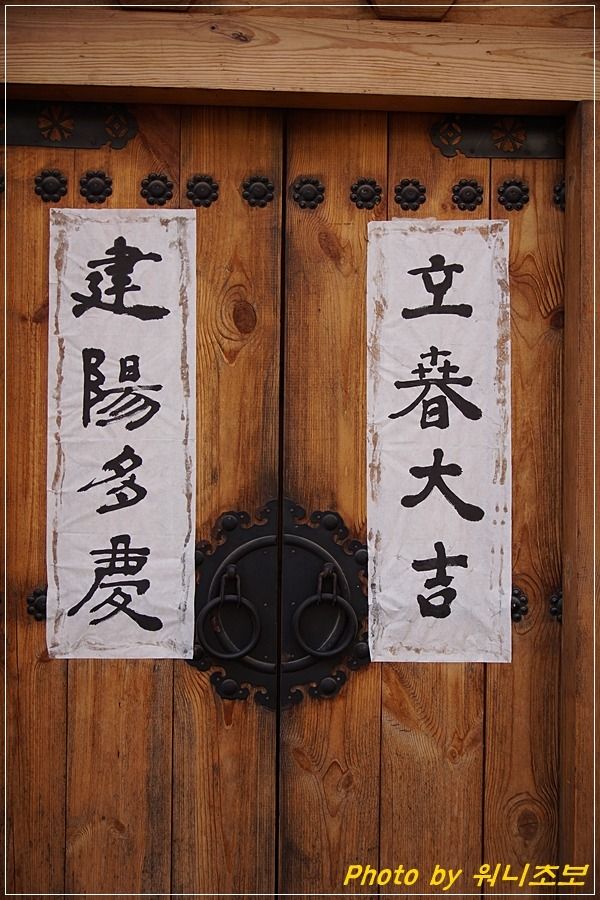 立春大吉
建陽多慶
Photo by 워니초보